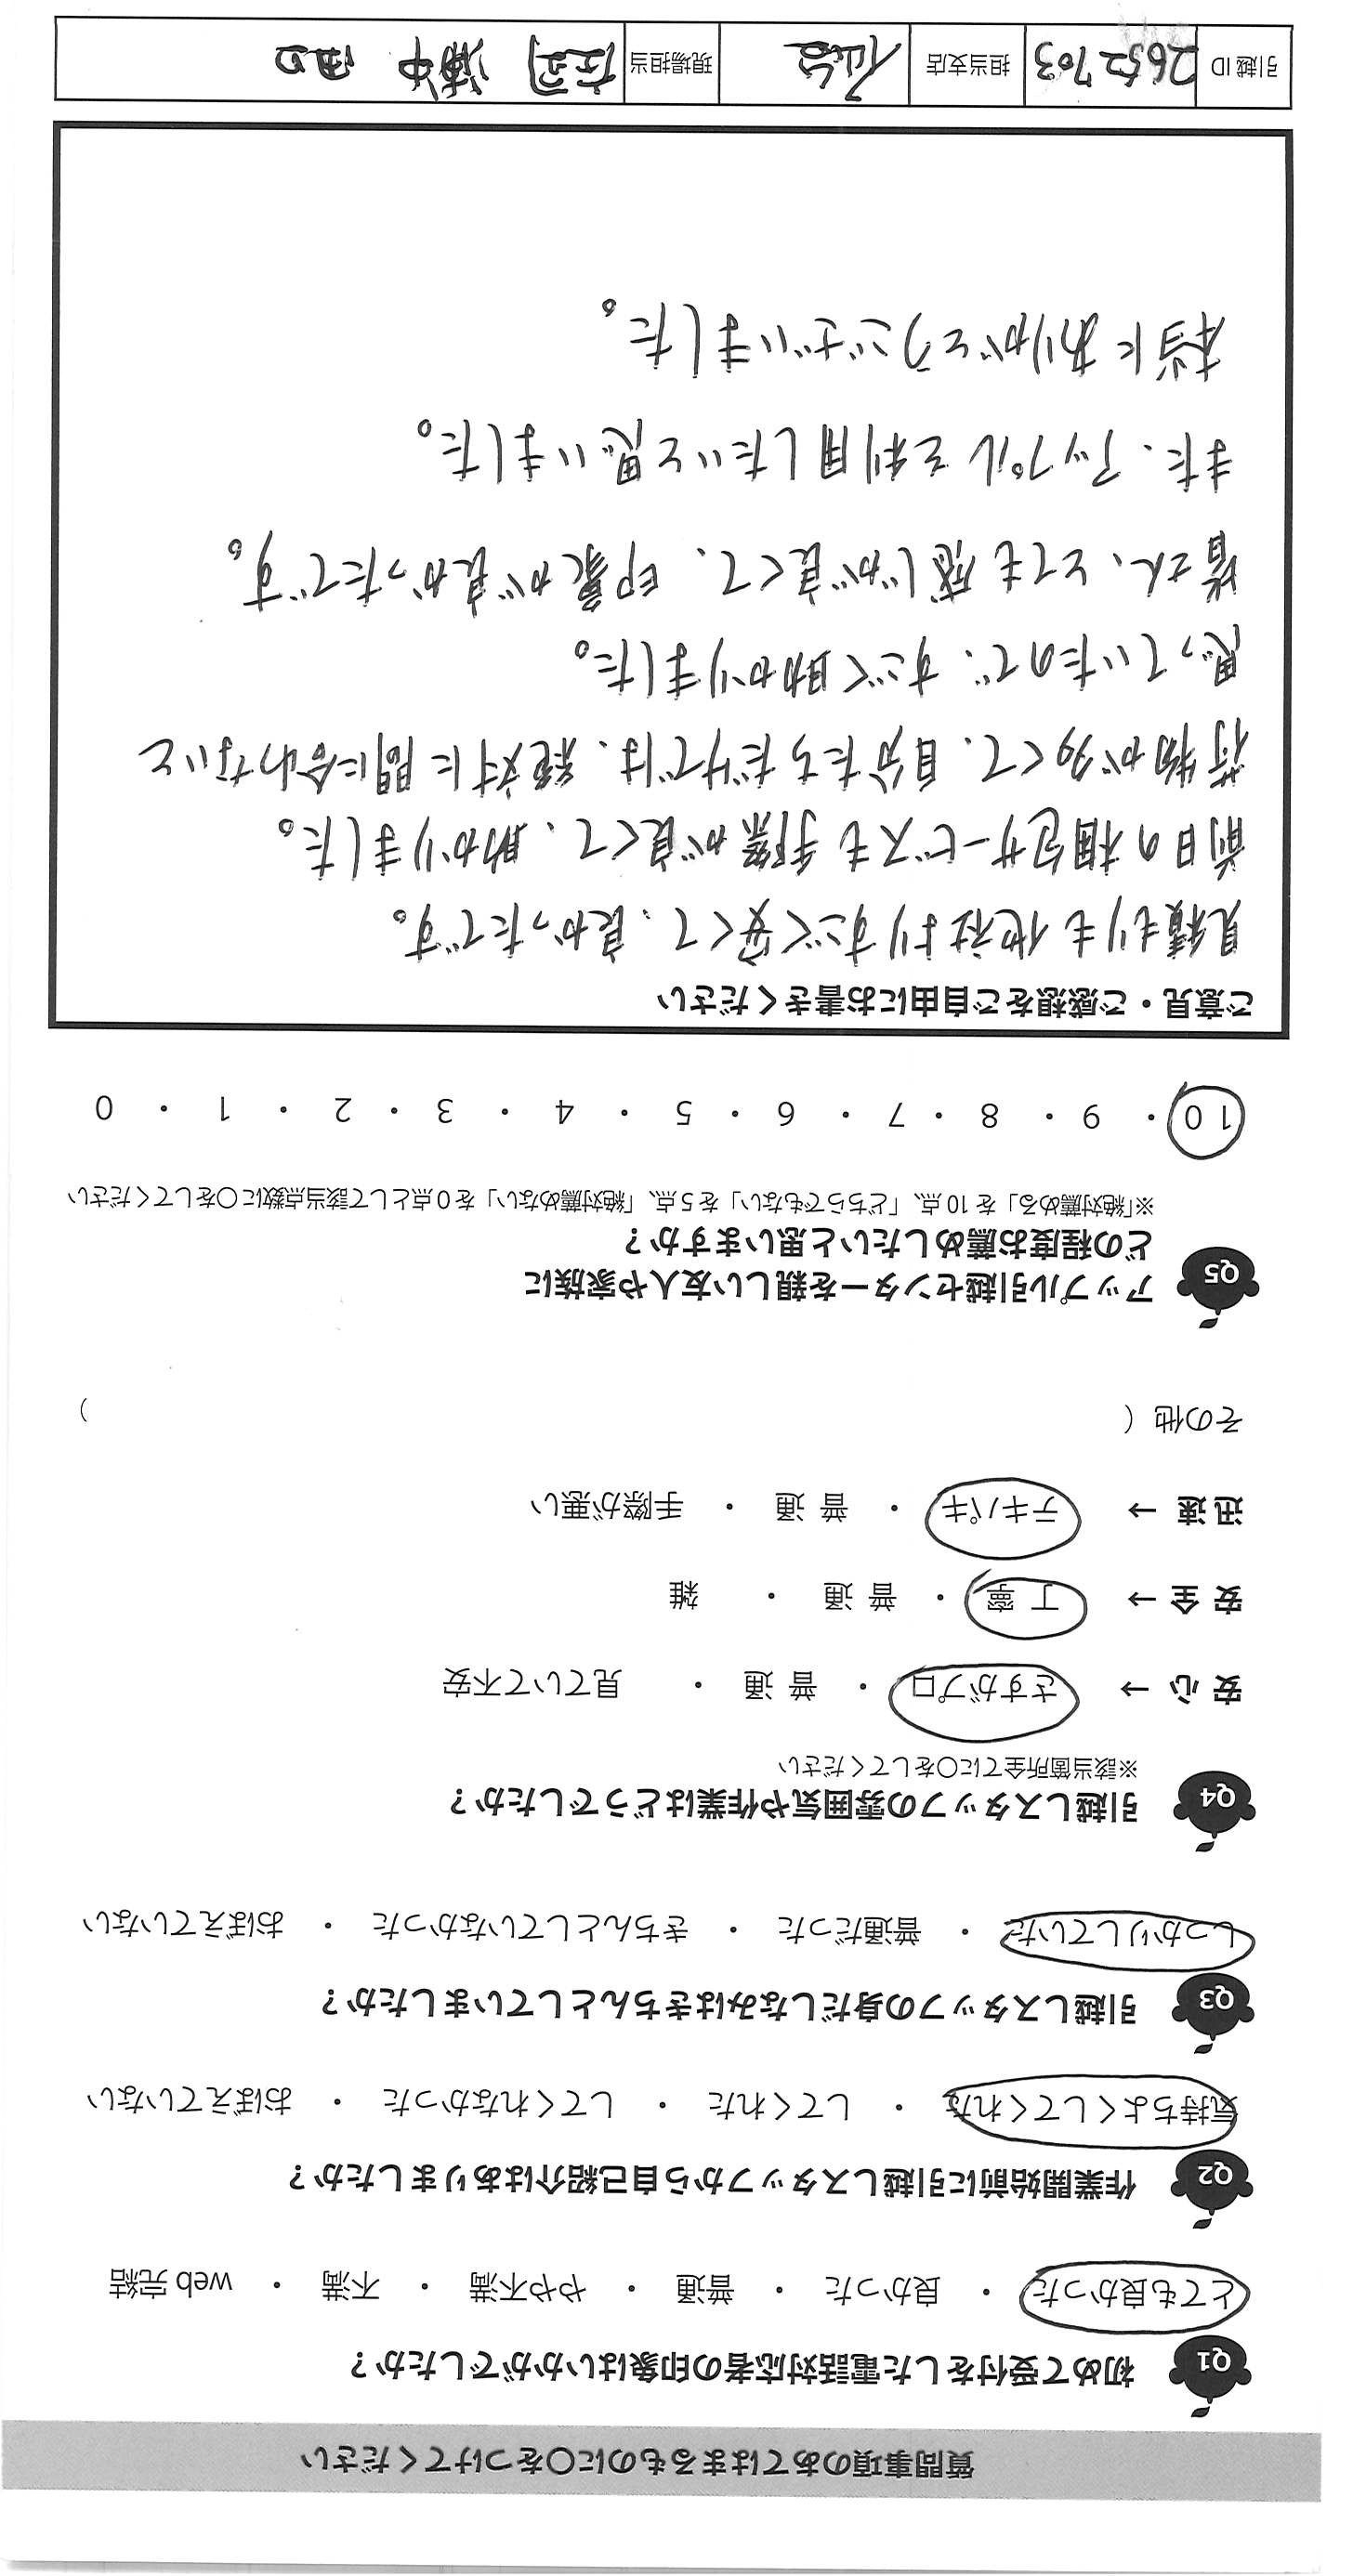 質問事項のあてはまるものに〇をつけてください
Q1 初めて受付をした電話対応者の印象はいかがでしたか？
とても良かった ・ 良かった ・ 普通 ・ やや不満 ・ 不満 ・ web 完結
Q2 作業開始前に引越しスタッフから自己紹介はありましたか？
気持ちよくしてくれた ・ してくれた ・ してくれなかった ・ おぼえていない
Q3 引越しスタッフの身だしなみはきちんとしていましたか？
しっかりしていた ・ 普通だった ・ きちんとしていなかった ・ おぼえていない
Q4 引越しスタッフの雰囲気や作業はどうでしたか？
※該当箇所全てに〇をしてください
安心 → さすがプロ ・ 普通 ・ 見ていて不安
安全 → 丁寧 ・ 普通 ・ 雑
迅速 → テキパキ ・ 普通 ・ 手際が悪い
その他（ ）
Q5 アップル引越センターを親しい友人や家族に
どの程度お薦めしたいと思いますか？
※「絶対薦める」を 10 点、「どちらでもない」を 5 点、「絶対薦めない」を 0 点として該当点数に〇をしてください
10 ・ 9 ・ 8 ・ 7 ・ 6 ・ 5 ・ 4 ・ 3 ・ 2 ・ 1 ・ 0
ご意見・ご感想をご自由にお書きください
見積もりも他社よりすごく安くて、良かったです。
前日の梱包サービスも手際が良くて、助かりました。
荷物が多くて、自分たちだけでは、絶対に間に合わないと
思っていたので、すごく助かりました。
皆さん、とても感じが良くて、印象が良かったです。
また、アップルを利用したいと思いました。
本当にありがとうございました。
引越 ID 2652703 担当支店 仙台 現場担当 庄司 湯中 田口